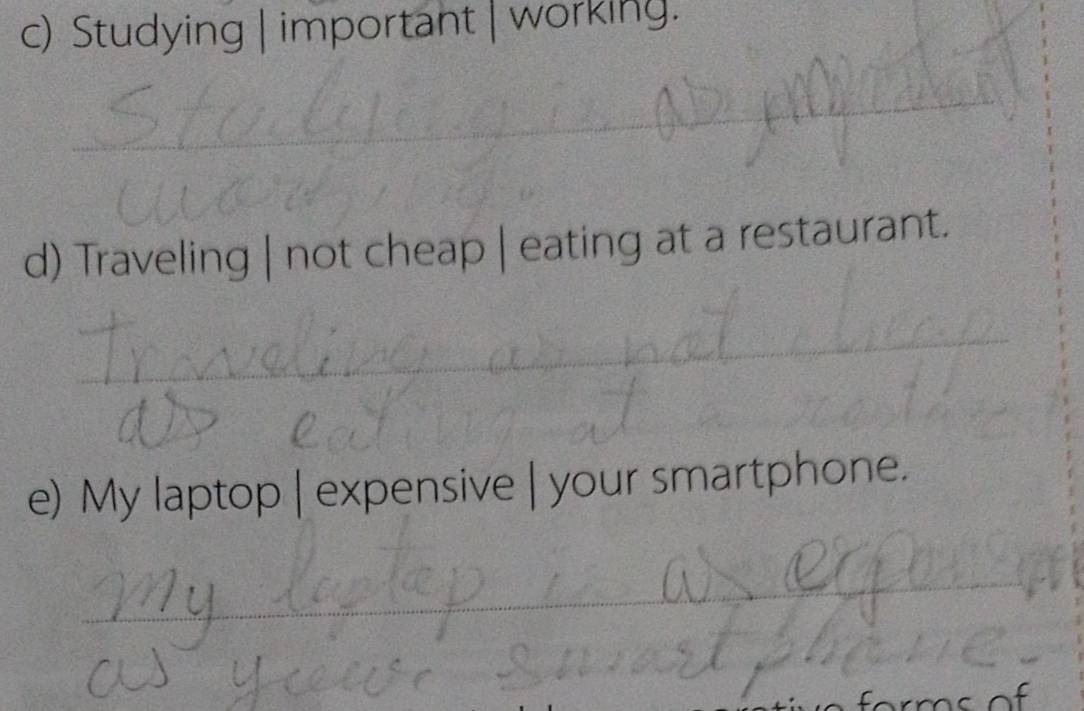 c) Studying | important | working.
Studying is as important
working.
d) Traveling | not cheap | eating at a restaurant.
Traveling as not cheap
as eating at a
e) My laptop | expensive | your smartphone.
My laptop is as
as your smartphone.
forms of